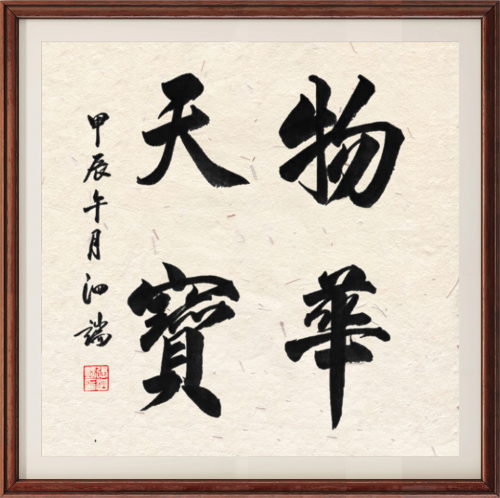 物華
天寶
甲辰午月泗端